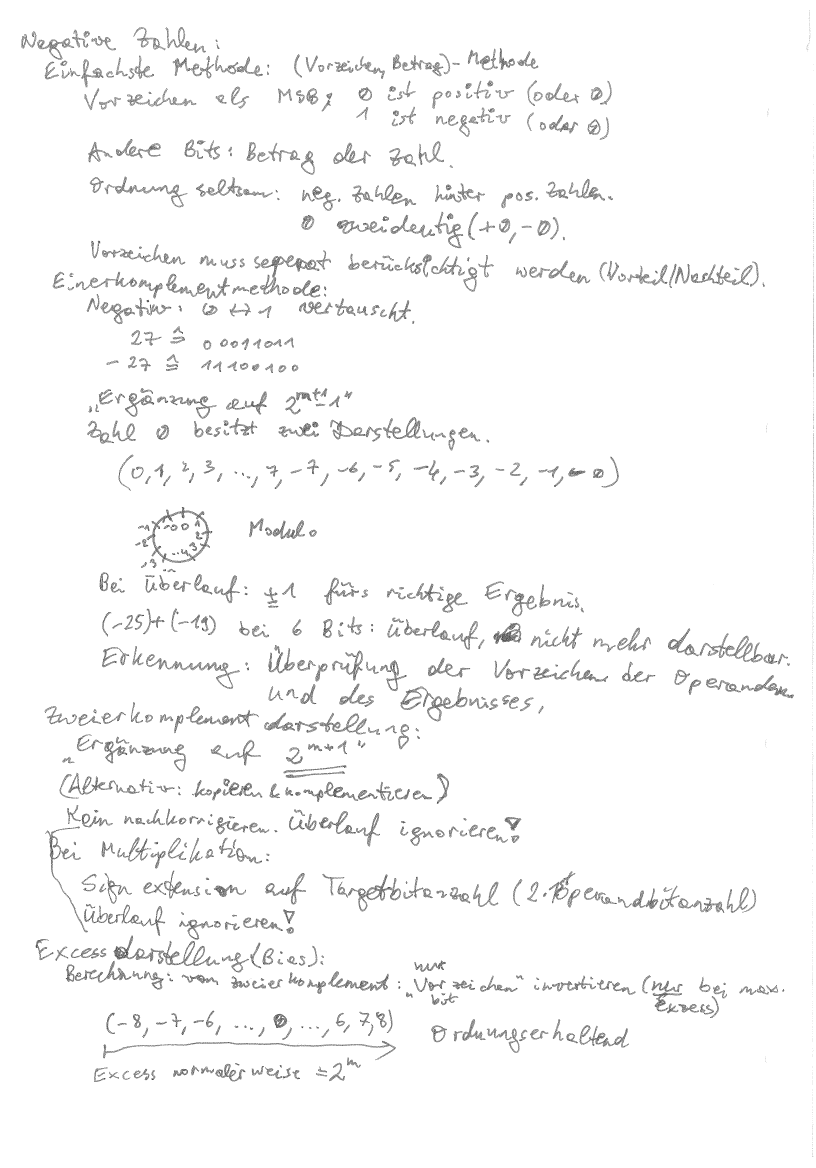 Negative Zahlen:
Einfachste Methode: (Vorzeichen, Betrag)-Methode
Vorzeichen als MSB; 0 ist positiv (oder 0)
1 ist negativ (oder 0)
Andere Bits: Betrag der Zahl.
Ordnung seltsam: neg. Zahlen hinter pos. Zahlen.
0 zweideutig (+0, -0).
Vorzeichen muss seperat berücksichtigt werden (Vorteil/Nachteil).
Einerkomplementmethode:
Negativ: 0 ↔ 1 vertauscht.
27 ≙ 00011011
-27 ≙ 11100100
„Ergänzung auf 2^{m+1}-1"
Zahl 0 besitzt zwei Darstellungen.
(0, 1, 2, 3, ..., 7, -7, -6, -5, -4, -3, -2, -1, -0)
-0 0 1 2 3 4 ... -3 -2 -1 Modulo
Bei Überlauf: ±1 fürs richtige Ergebnis.
(-25)+(-19) bei 6 Bits: Überlauf, nicht mehr darstellbar.
Erkennung: Überprüfung der Vorzeichen der Operanden
und des Ergebnisses,
Zweierkomplementdarstellung:
„Ergänzung auf 2^{m+1}"
(Alternativ: kopieren & komplementieren)
Kein nachkorrigieren. Überlauf ignorieren!
Bei Multiplikation:
Sign extension auf Targetbitanzahl (2·Operandbitanzahl)
Überlauf ignorieren!
Excessdarstellung (Bias):
Berechnung: vom zweierkomplement: nur „Vorzeichen" bit invertieren (nur bei max. Exzess)
(-8, -7, -6, ..., 0, ..., 6, 7, 8) Ordnungserhaltend
Excess normalerweise = 2^m